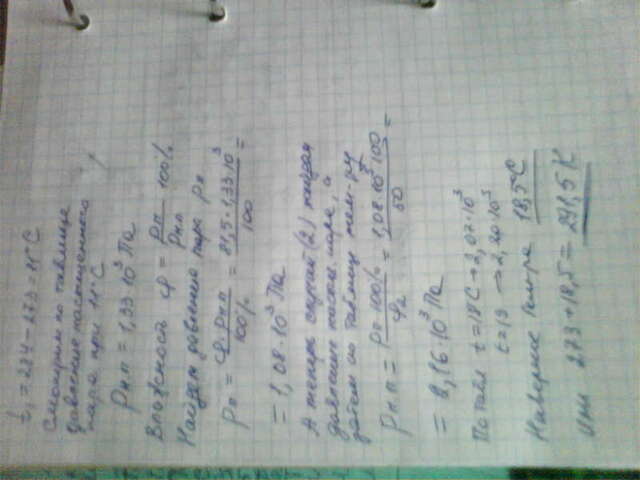 t₁ = 284 - 273 = 11°C
Смотрим по таблице
давление насыщенного
пара при 11°C
Pнп = 1,33·10³ Па
Влажность φ = Pп/Pнп 100%
Найдем давление пара Pп
Pп = φ·Pнп/100% = 81,5·1,33·10³/100 =
= 1,08·10³ Па
А теперь случай (2) найдем
давление насыщ. пара, а
затем по таблице темп-ру
Pнп = Pп·100%/φ₂ = 1,08·10³·100/50 =
= 2,16·10³ Па
По табл t=18°C → 2,07·10³
t=19 → 2,20·10³
Наверное темп-ра 18,5°C
Или 273+18,5 = 291,5 K